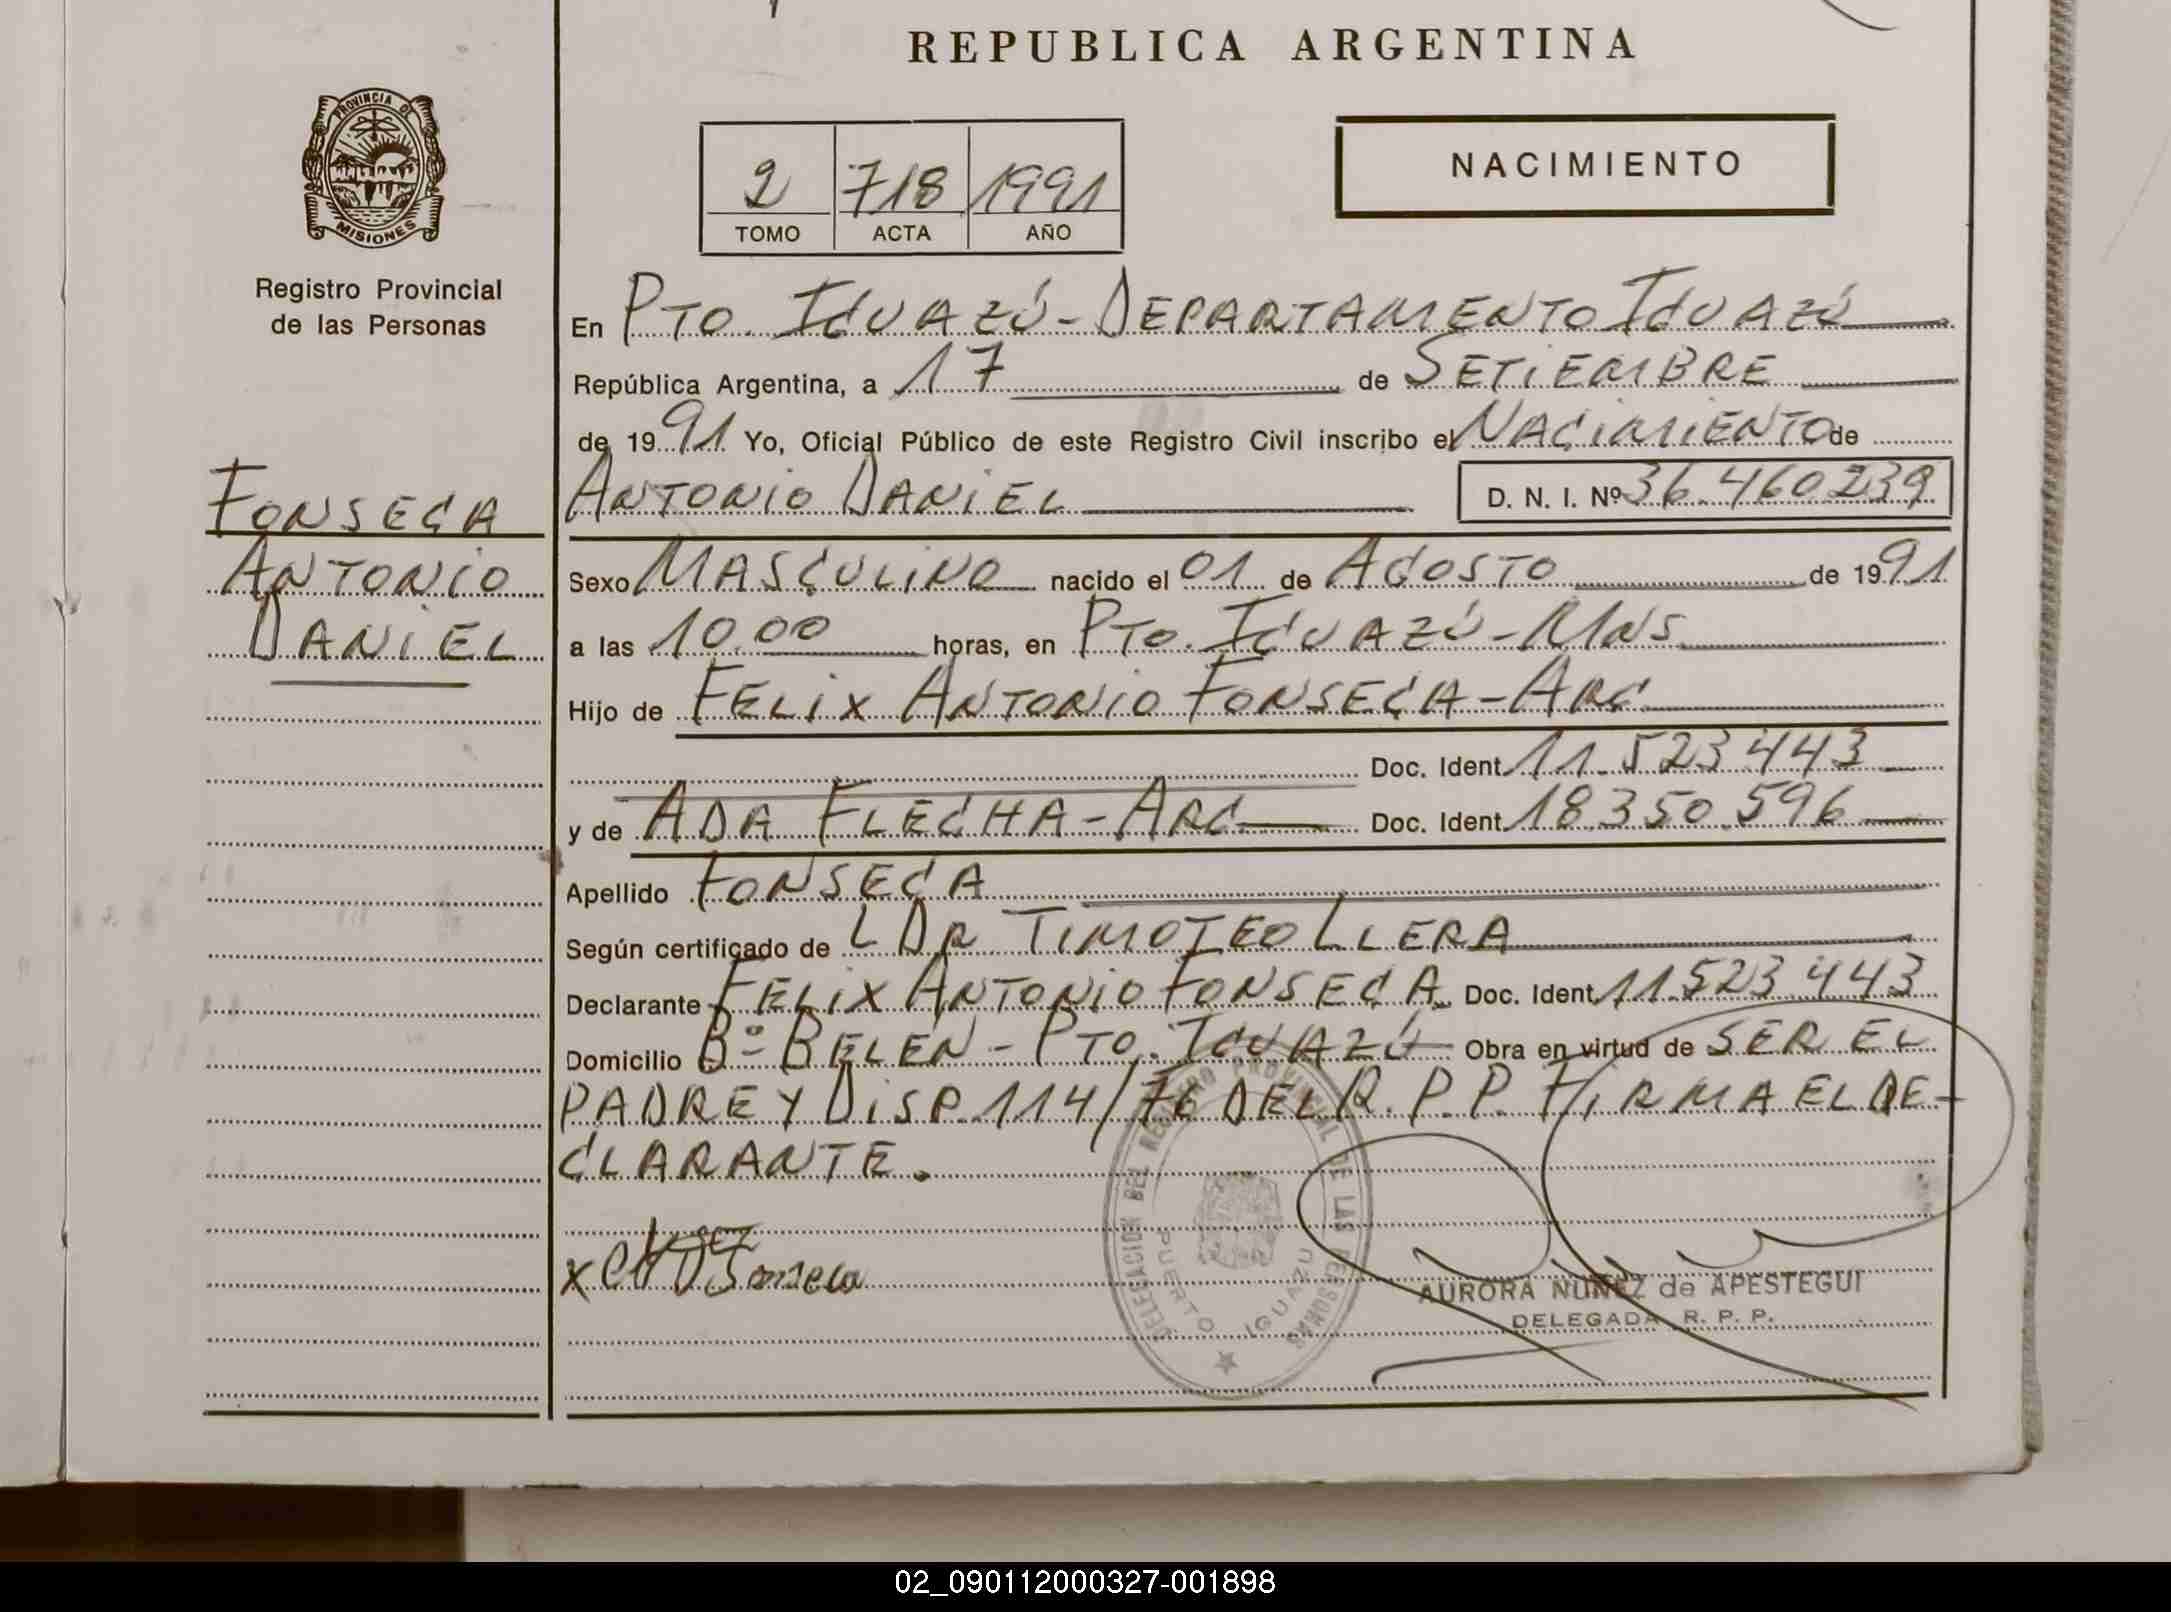 REPUBLICA ARGENTINA
PROVINCIA DE
MISIONES
Registro Provincial
de las Personas
NACIMIENTO
2 718 1991
TOMO ACTA AÑO
En PTO. IGUAZÚ - DEPARTAMENTO IGUAZÚ
República Argentina, a 17 de SETIEMBRE
de 1991 Yo, Oficial Público de este Registro Civil inscribo el NACIMIENTO de
FONSECA
ANTONIO
DANIEL
ANTONIO DANIEL D. N. I. Nº 36.460.239
Sexo MASCULINO nacido el 01 de AGOSTO de 1991
a las 10.00 horas, en PTO. IGUAZÚ - MNS
Hijo de FELIX ANTONIO FONSECA - ARG
Doc. Ident. 11.523.443
y de ADA FLECHA - ARG Doc. Ident. 18.350.596
Apellido FONSECA
Según certificado de L DR TIMOTEO LLERA
Declarante FELIX ANTONIO FONSECA. Doc. Ident. 11.523.443
Domicilio Bº BELEN - PTO. IGUAZÚ Obra en virtud de SER EL
PADRE Y DISP. 114/76 DEL R. P. P. FIRMA EL DE-
CLARANTE.
DELEGACION DEL REGISTRO PROVINCIAL DE LAS PERSONAS
PUERTO IGUAZU
x Fonseca
AURORA NUÑEZ de APESTEGUI
DELEGADA R. P. P.
02_090112000327-001898